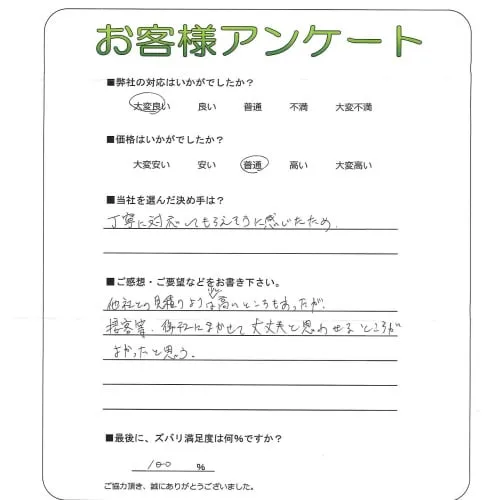 お客様アンケート
■弊社の対応はいかがでしたか?
大変良い 良い 普通 不満 大変不満
■価格はいかがでしたか?
大変安い 安い 普通 高い 大変高い
■当社を選んだ決め手は?
丁寧に対応してもらえそうに感じたため.
■ご感想・ご要望などをお書き下さい。
他社との見積りよりは高いところもあったが、
接客等、御社にまかせて大丈夫と思わせるところが
よかったと思う。
■最後に、ズバリ満足度は何%ですか?
100 %
ご協力頂き、誠にありがとうございました。